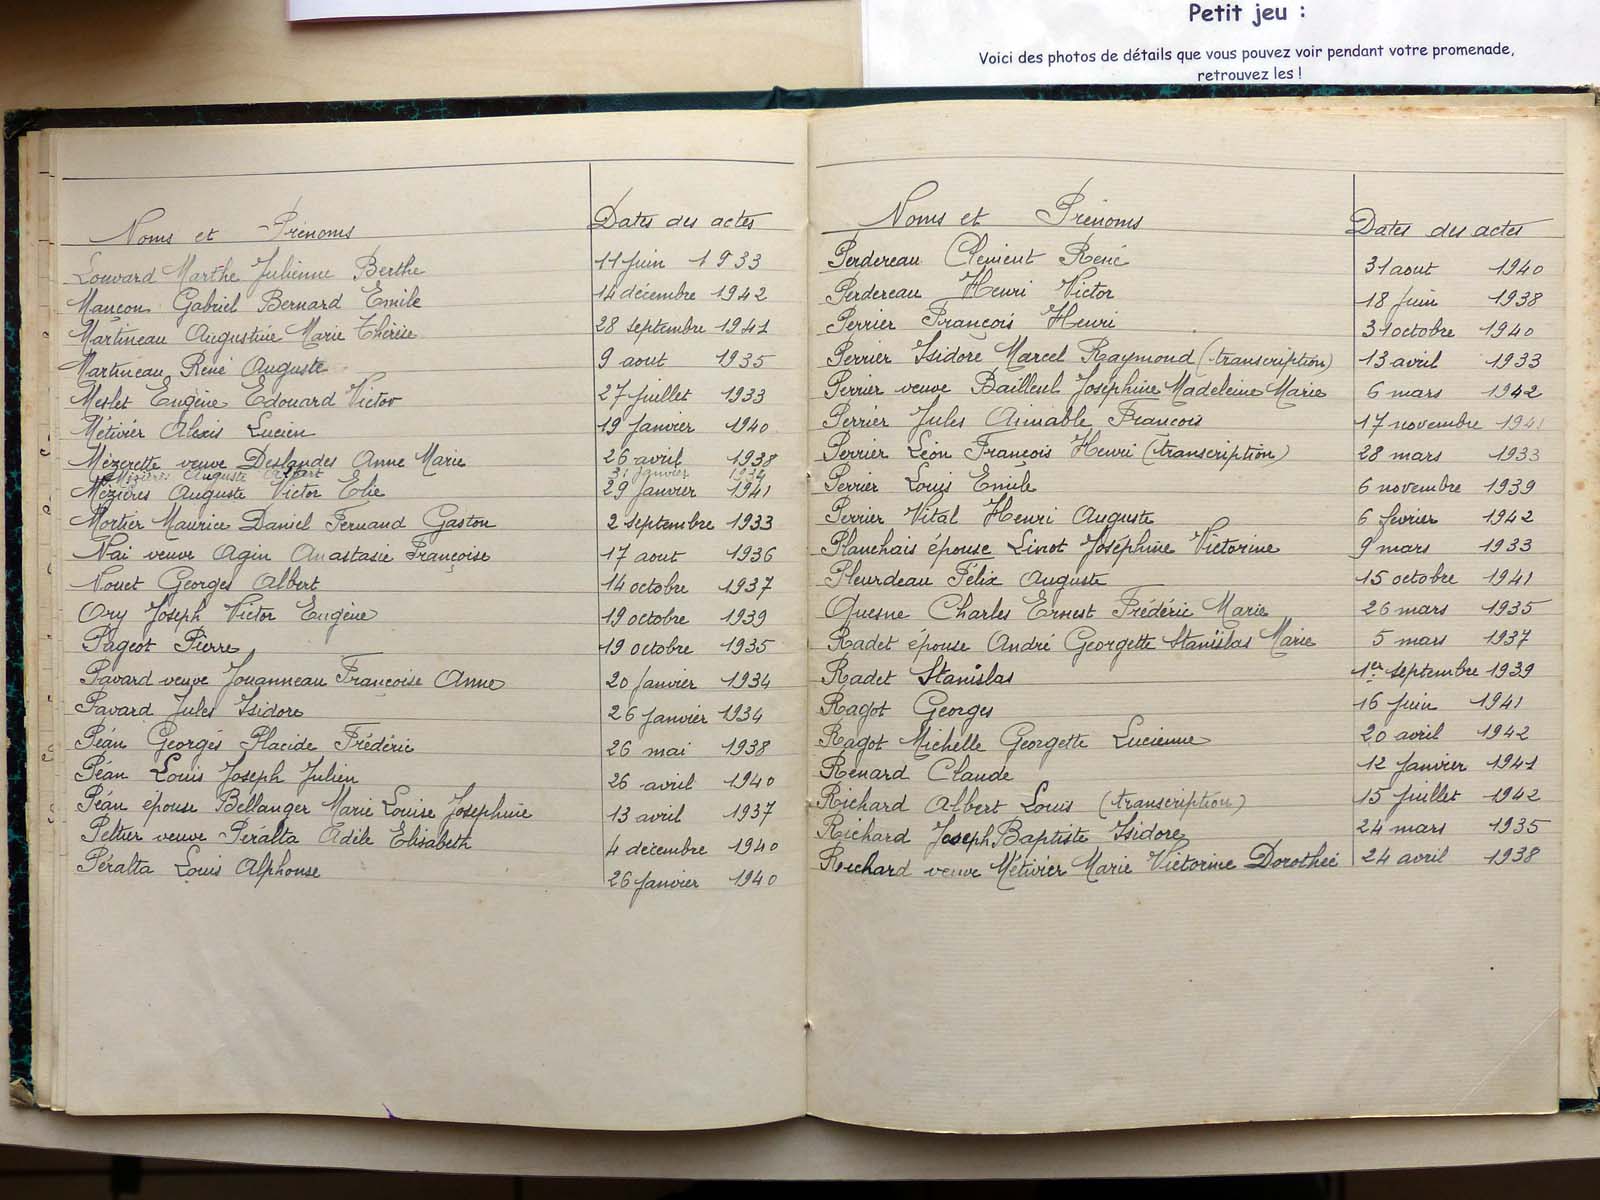 Petit jeu :
Voici des photos de détails que vous pouvez voir pendant votre promenade,
retrouvez les !
Noms et Prénoms Dates des actes
Louvard Marthe Julienne Berthe 11 juin 1933
Mançon Gabriel Bernard Emile 14 décembre 1942
Martineau Augustine Marie Thérèse 28 septembre 1941
Martineau René Auguste 9 aout 1935
Meslet Eugène Edouard Victor 27 juillet 1933
Métivier Alexis Lucien 19 janvier 1940
Mézerette veuve Deslandes Anne Marie 26 avril 1938
Mézières Auguste 31 janvier 1934
Mézières Auguste Victor Elie 29 janvier 1941
Mortier Maurice Daniel Fernand Gaston 2 septembre 1933
Nai veuve Agin Anastasie Françoise 17 aout 1936
Nouet Georges Albert 14 octobre 1937
Ory Joseph Victor Eugène 19 octobre 1939
Pageot Pierre 19 octobre 1935
Pavard veuve Jouanneau Françoise Anne 20 janvier 1934
Pavard Jules Isidore 26 janvier 1934
Péan Georges Placide Frédéric 26 mai 1938
Péan Louis Joseph Julien 26 avril 1940
Péan épouse Bellanger Marie Louise Joséphine 13 avril 1937
Peltier veuve Péralta Adèle Elisabeth 4 décembre 1940
Péralta Louis Alphonse 26 janvier 1940
Noms et Prénoms Dates des actes
Perdereau Clément René 31 aout 1940
Perdereau Henri Victor 18 juin 1938
Perrier François Henri 31 octobre 1940
Perrier Isidore Marcel Raymond (transcription) 13 avril 1933
Perrier veuve Bailleul Joséphine Madeleine Marie 6 mars 1942
Perrier Jules Aimable François 17 novembre 1941
Perrier Léon François Henri (transcription) 28 mars 1933
Perrier Louis Emile 6 novembre 1939
Perrier Vital Henri Auguste 6 fevrier 1942
Planchais épouse Linot Joséphine Victorine 9 mars 1933
Pleurdeau Félix Auguste 15 octobre 1941
Quesne Charles Ernest Frédéric Marie 26 mars 1935
Radet épouse André Georgette Stanislas Marie 5 mars 1937
Radet Stanislas 1er septembre 1939
Ragot Georges 16 juin 1941
Ragot Michelle Georgette Lucienne 20 avril 1942
Renard Claude 12 janvier 1941
Richard Albert Louis (transcription) 15 juillet 1942
Richard Joseph Baptiste Isidore 24 mars 1935
Richard veuve Métivier Marie Victorine Dorothée 24 avril 1938